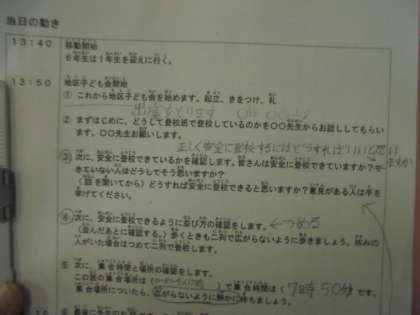 当日の動き
13:40
移動開始
6年生は1年生を迎えに行く。
13:50
地区子ども会開始
① これから地区子ども会を始めます。起立、きをつけ、礼
出席をとります
② まずはじめに、どうして登校班で登校しているのかを〇〇先生からお話ししてもらい
ます。〇〇先生お願いします。
正しく安全に登校するにはどうすればいいと思い
ますか
③ 次に、安全に登校できているかを確認します。皆さんは安全に登校できていますか?で
きていない人はどうしてそう思いますか?
(話を聞いてから)どうすれば安全に登校できると思いますか?意見がある人は手を
挙げてください。
④ 次に、安全に登校できるように並び方の確認をします。←つめる
(並んだあとに確認する。)歩くときも二列で広がらないように歩きましょう。休みの
人がいた場合はつめて二列で登校します。
⑤ 次に、集合時間と場所の確認をします。
この班の集合場所は( )で集合時間は(7時50分)です。
集合場所についたら、広がらないように静かに待ちましょう。